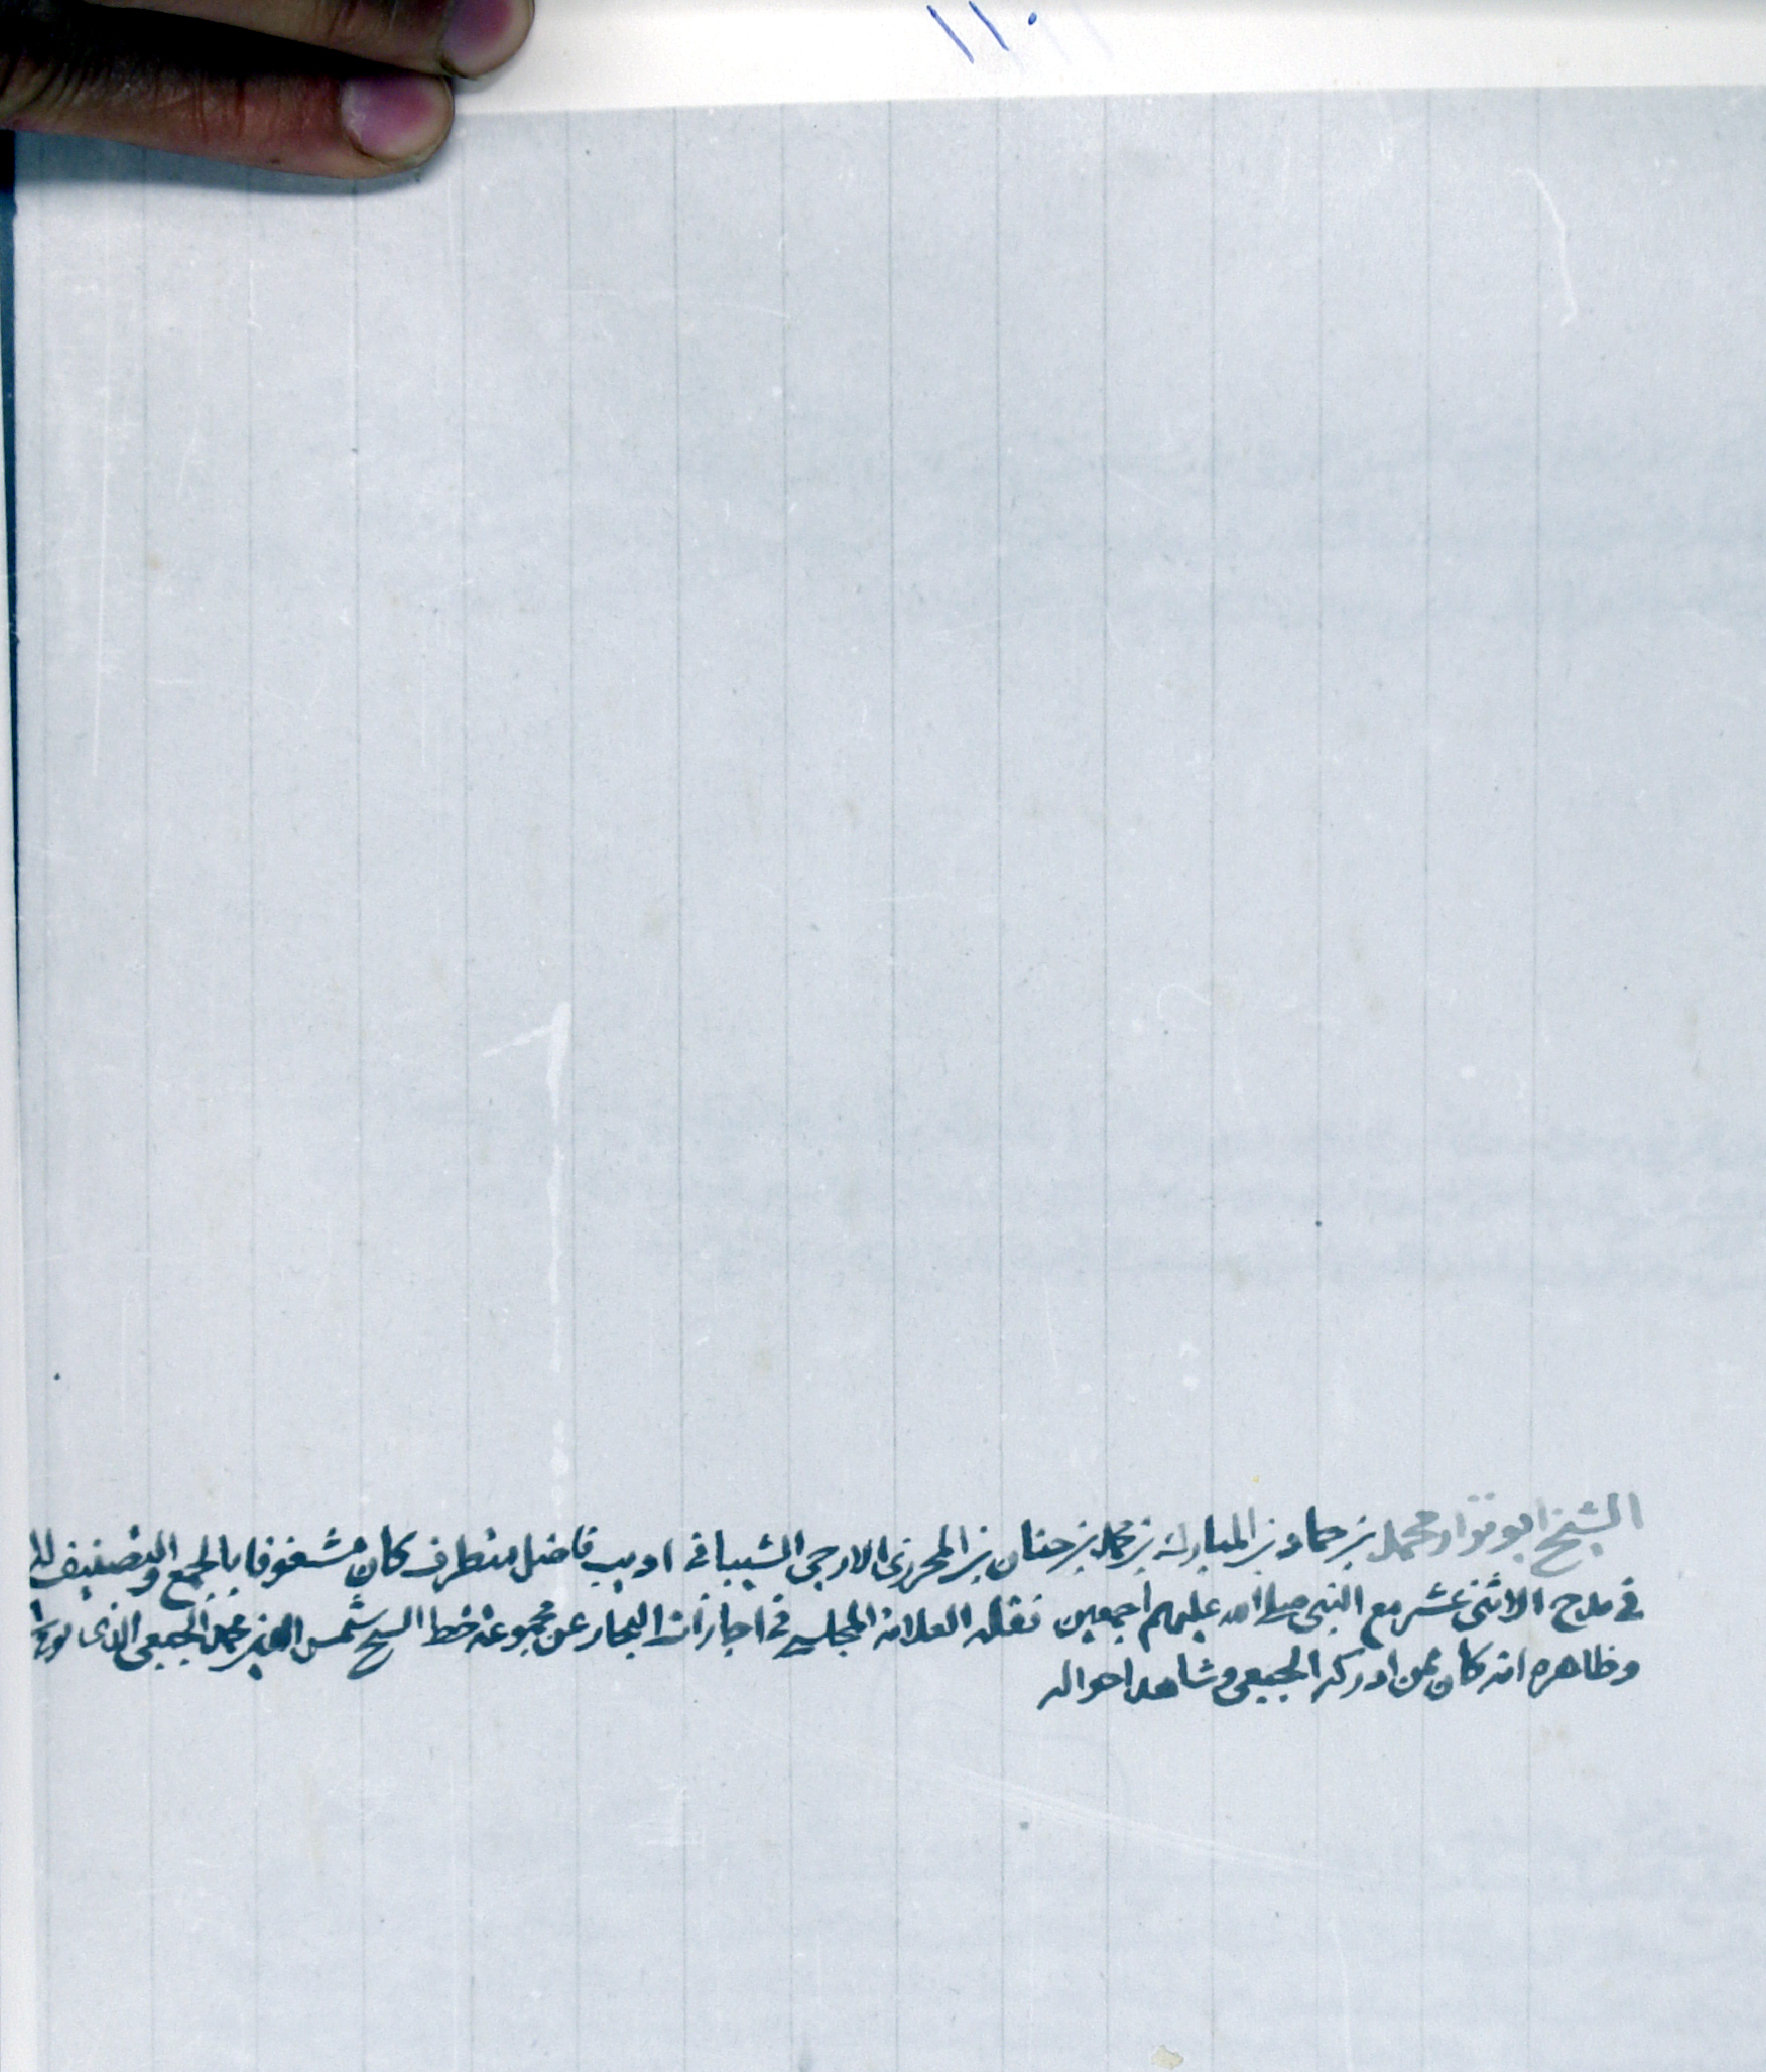 ١١٠
الشيخ ابو تراب محمد بن حماد بن المبارك بن محمد بن حنان بن المحرزى الارجى الشيبانى اديب فاضل متطرف كان مشغوفا بالجمع والتصنيف
فى مدح الاثنى عشر مع النبى صلى الله عليهم اجمعين نقله العلامة المجلسى فى اجازات البحار عن مجموعة بخط الشيخ شمس الدين محمد الجبعى الذى
وظاهره انه كان ممن ادركه الجبعى وشاهد احواله